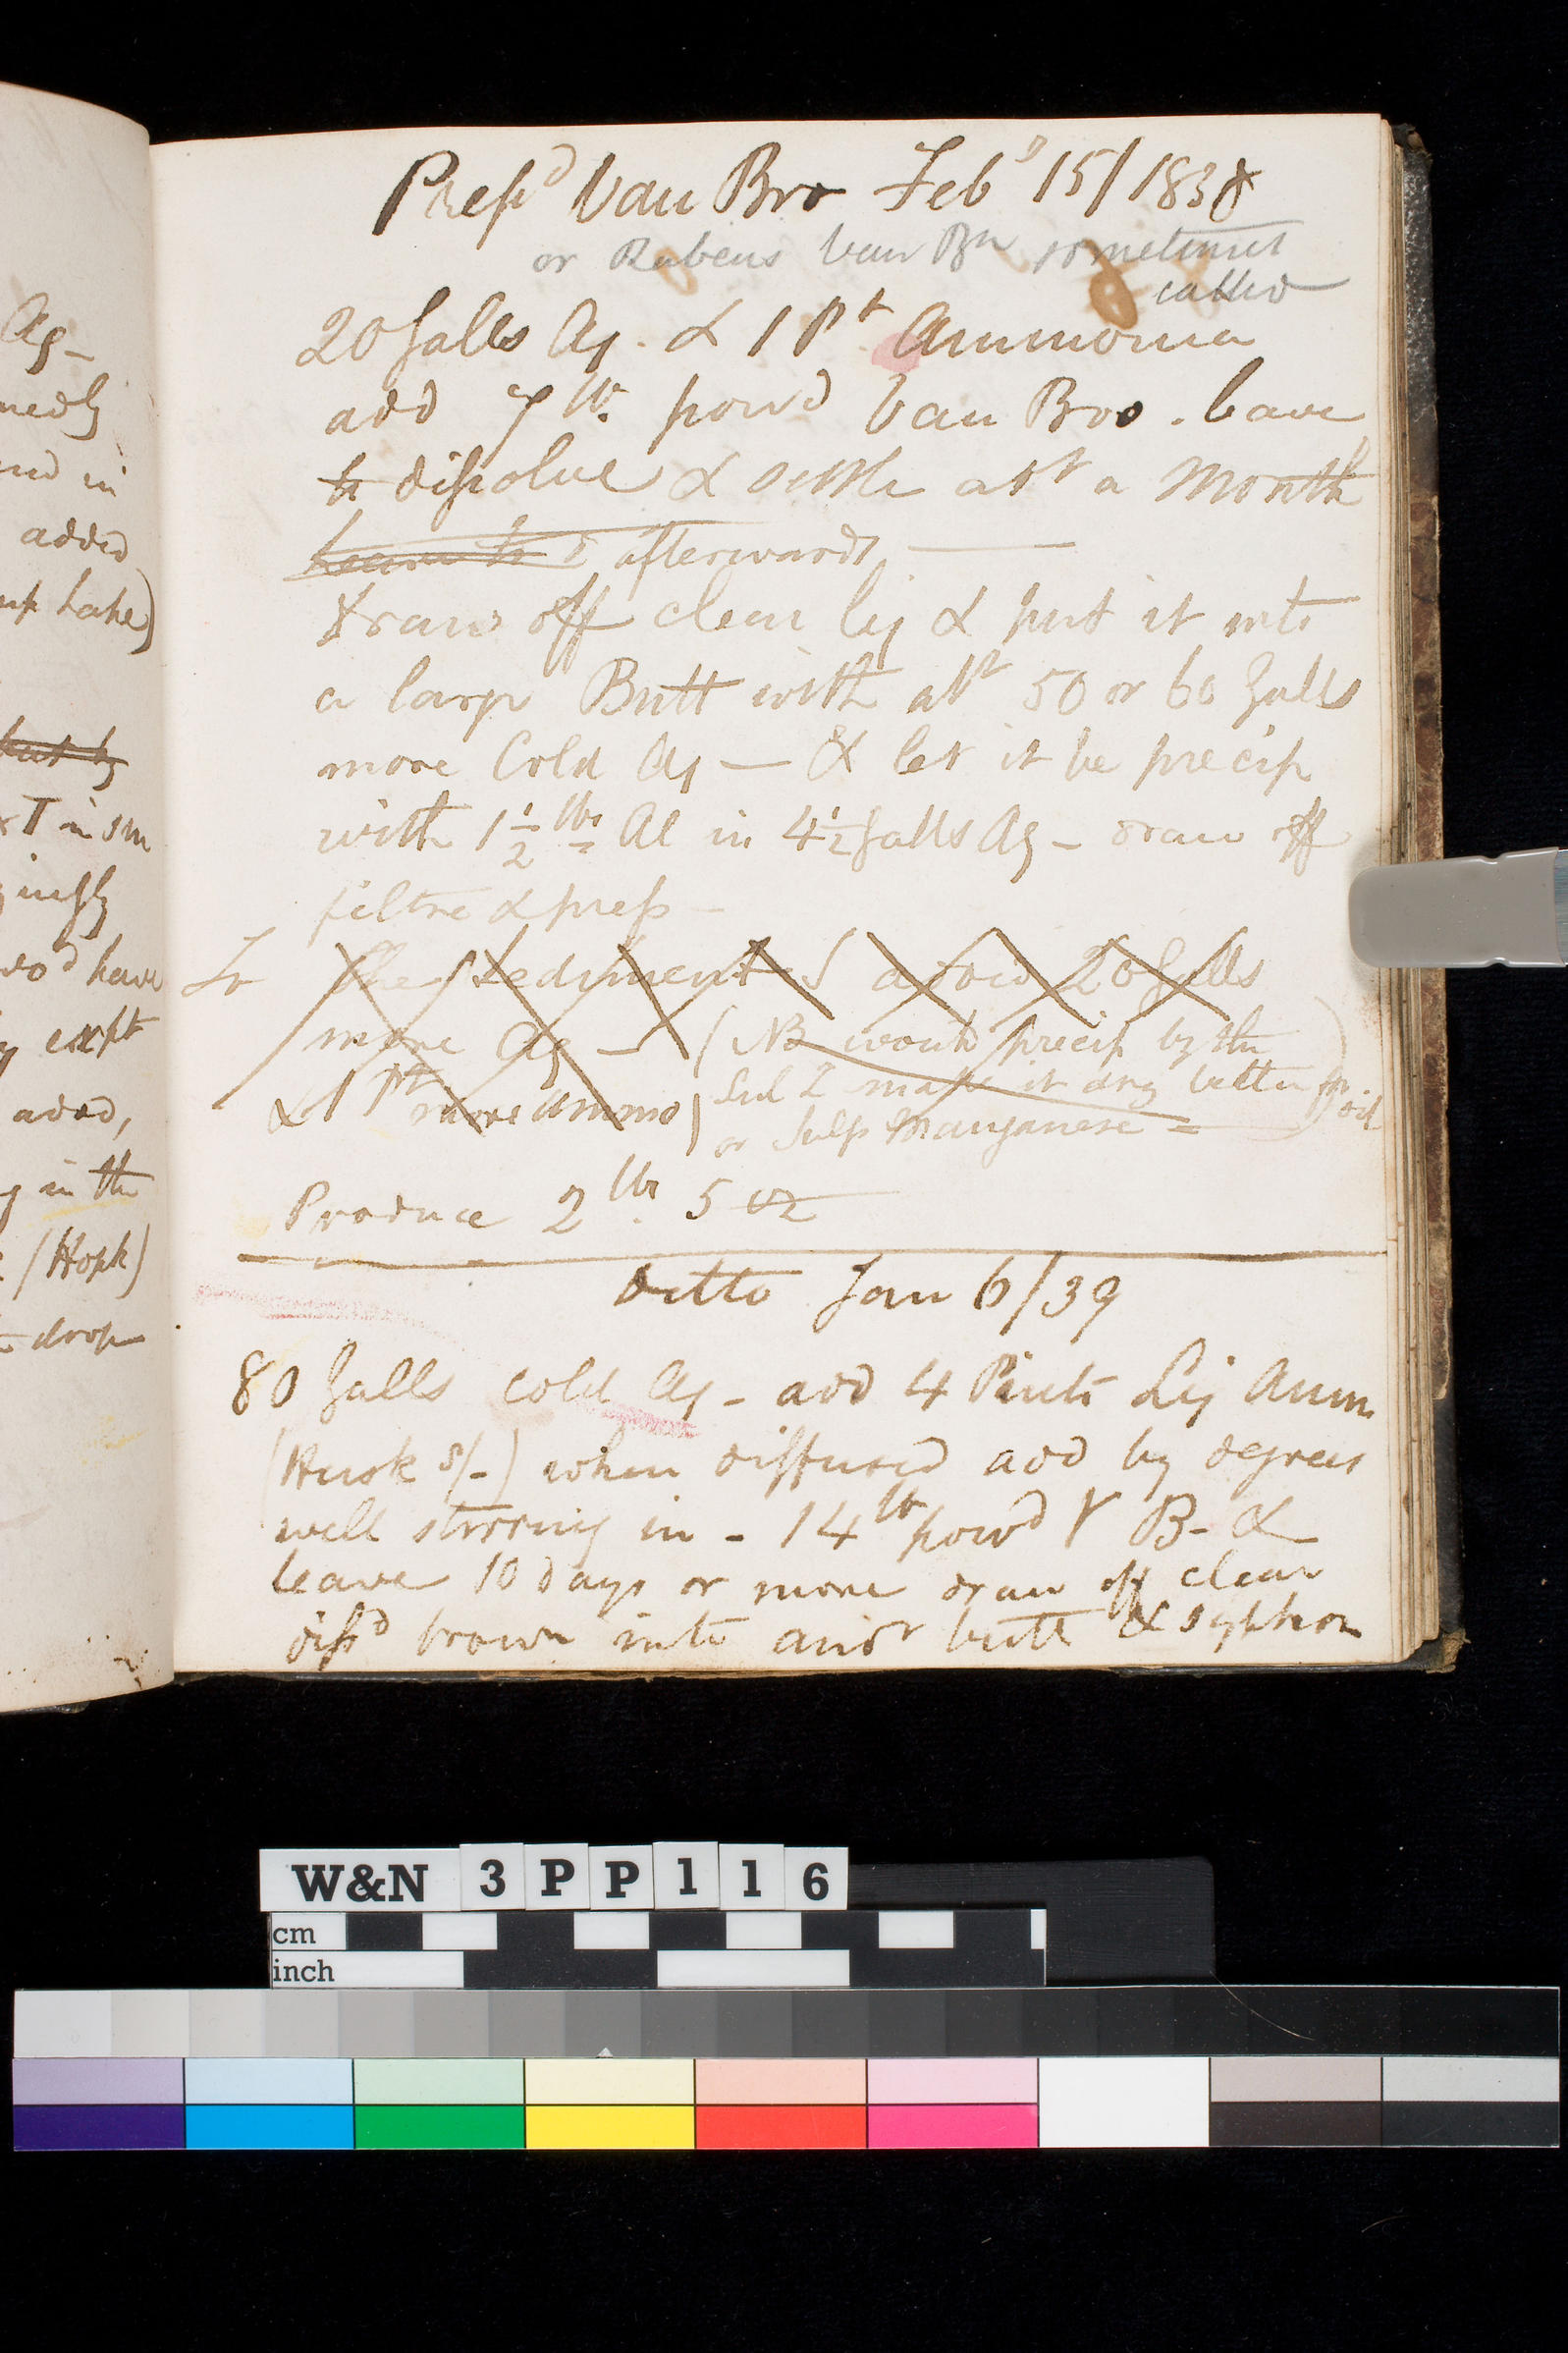 Ag-
nedly
and in
added
up Lake)
but by
x T in sm
ingly
wod have
y exept
added,
g in the
: (Hopk)
drop
Prepd Van Bro Feby 15/1838
or Rubens Van Bn sometimes
called
20 Galls Aq. & 1 Pt Ammonia
add 7 lb. powd Van Bro. leave
to dissolve & settle abt a Month
leave to afterwards
draw off clear liq & put it into
a large Butt with abt 50 or 60 Galls
more Cold Aq — & let it be precip
with 1 1/2 lbs Al in 4 1/2 Galls Aq - draw off
filtre & press -
To the sediment add 20 Galls
more Aq — (NB would precip by the
& 1 Pt more Ammo) Sul Z make it dry better in oil
or Sulp Manganese =
Produce 2 lbs. 5 oz
Ditto Jan 6/39
80 Galls cold Aq - add 4 Pints Liq Amm
(Husk s/-) when diffused add by degrees
well stirring in - 14 lb powd V B- &
leave 10 days or more draw off clear
dissd brown into anor butt & syphon
W&N 3PP116
cm
inch